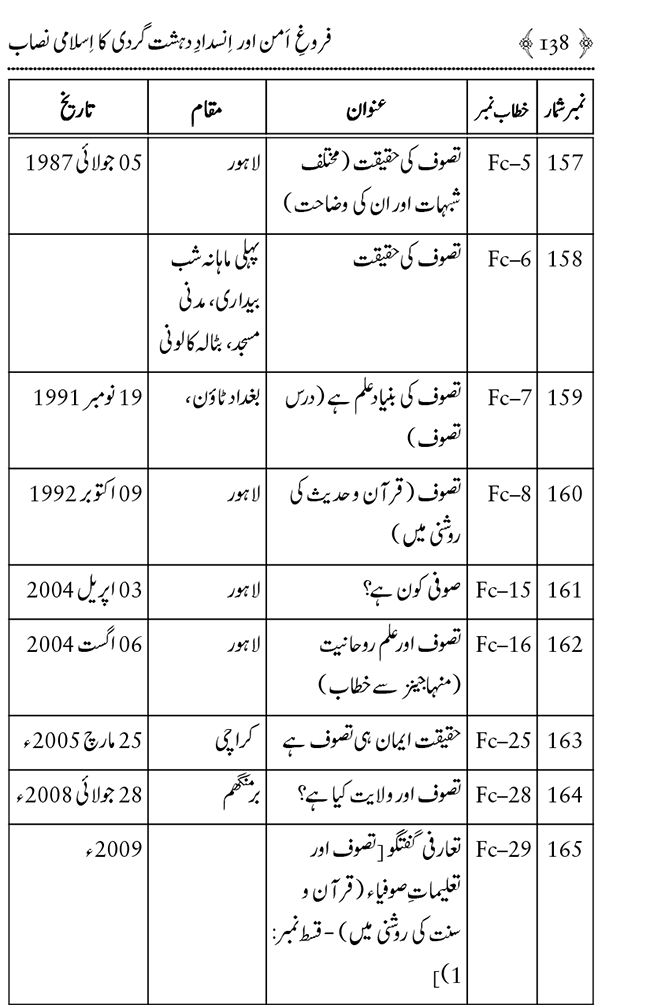 ﴿ 138 ﴾ فروغِ اَمن اور اِنسدادِ دہشت گردی کا اِسلامی نصاب
نمبر شمار خطاب نمبر عنوان مقام تاریخ
157 Fc–5 تصوف کی حقیقت (مختلف لاہور 05 جولائی 1987
شبہات اور ان کی وضاحت)
158 Fc–6 تصوف کی حقیقت پہلی ماہانہ شب
بیداری، مدنی
مسجد، بٹالہ کالونی
159 Fc–7 تصوف کی بنیاد علم ہے (درس بغداد ٹاؤن، 19 نومبر 1991
تصوف)
160 Fc–8 تصوف (قرآن و حدیث کی لاہور 09 اکتوبر 1992
روشنی میں)
161 Fc–15 صوفی کون ہے؟ لاہور 03 اپریل 2004
162 Fc–16 تصوف اور علم روحانیت لاہور 06 اگست 2004
(منہاجینز سے خطاب)
163 Fc–25 حقیقت ایمان ہی تصوف ہے کراچی 25 مارچ 2005ء
164 Fc–28 تصوف اور ولایت کیا ہے؟ برمنگھم 28 جولائی 2008ء
165 Fc–29 تعارفی گفتگو [تصوف اور 2009ء
تعلیماتِ صوفیاء (قرآن و
سنت کی روشنی میں) - قسط نمبر:
1)]